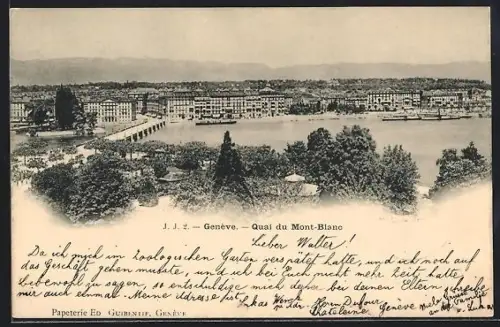 J. J. 2. — Genève. — Quai du Mont-Blanc
Lieber Walter!
Da ich mich im Zoologischen Garten verspätet hatte, und ich noch auf
das Geschäft gehen musste, und ich bei Euch nicht mehr Zeit hatte
liebevoll zu sagen, so entschuldige mich daher bei deinen Eltern schreibe
mir auch einmal. Meine Adresse ist Lukas
Châtelaine Genève
Papeterie Ed. Guibentif, Genève